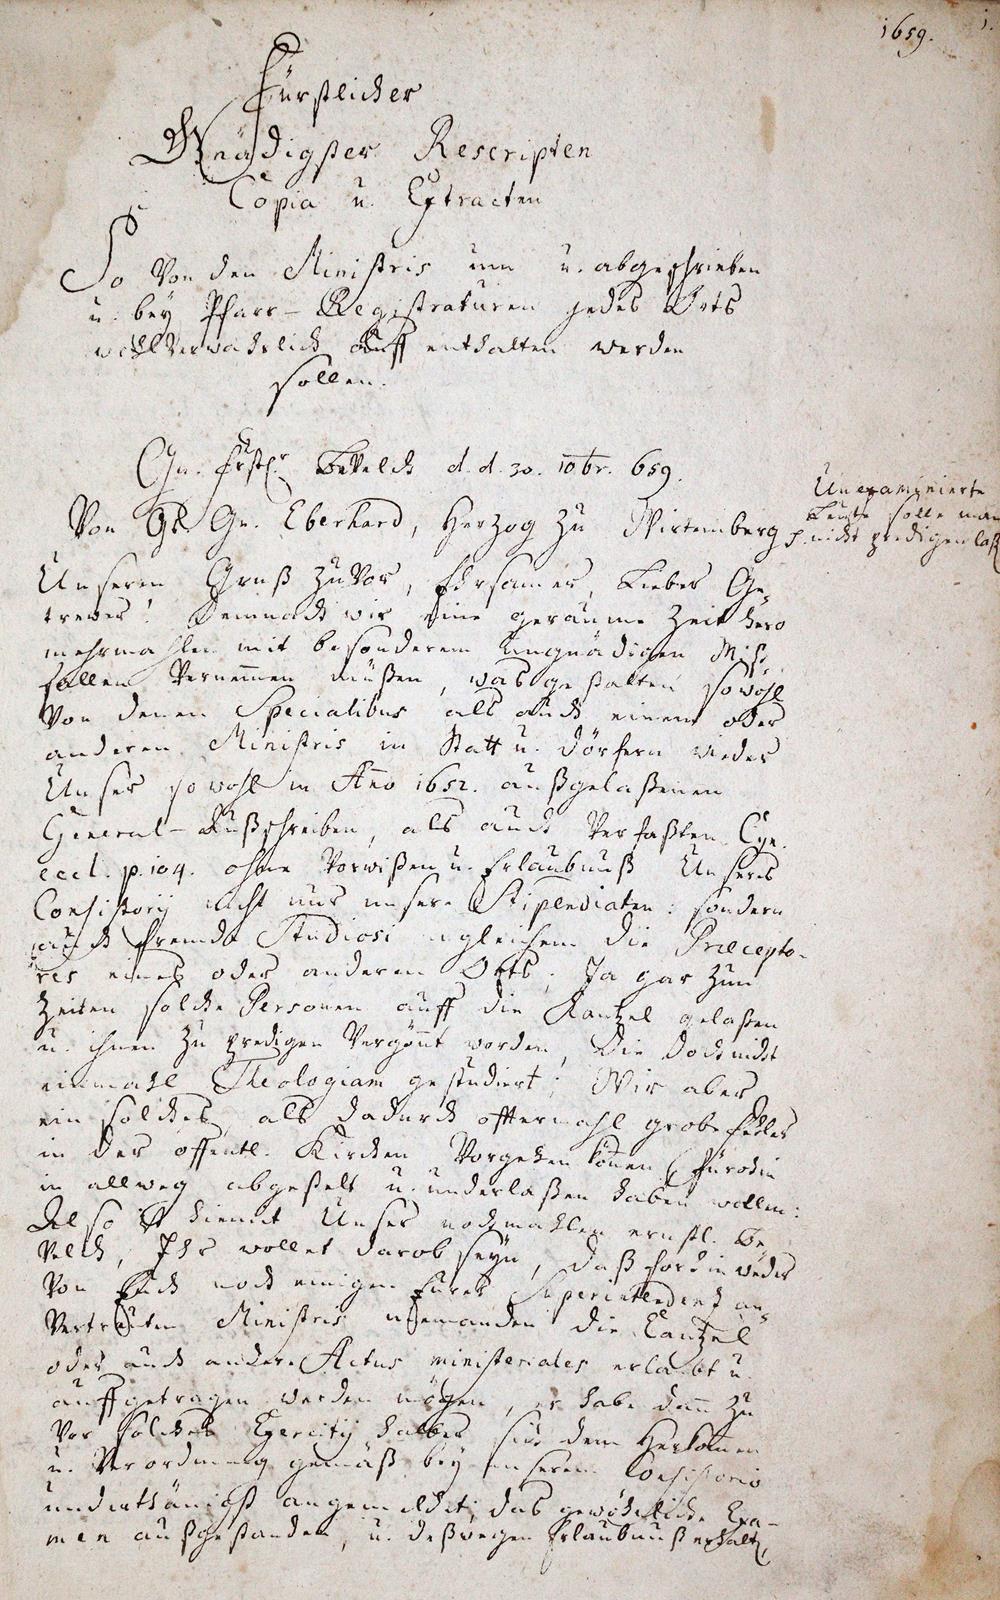 1659. 1.
Fürstlicher
Gnädigster Rescripten
Copia u. Extracten
So von den Ministris umb u. abgeschrieben
u. bey Pfarr-Registraturen jedes Orts
wohlverwahrlich auff enthalten werden
sollen.
Gn. Fürstl. Bevelch d. d. 30. 10br. 659.
Unexaminierte
Leuthe solle man
nicht predigen laß
Von G. Gn. Eberhard, Herzog zu Wirtemberg p.
Unseren Gruß zuvor, Ehrsamer, Lieber Ge-
trewer! Demnach wir eine geraume Zeit hero
mehrmahlen mit besonderem ungnädigen Miß-
fallen vernemmen müßen, was gestalten sowohl
von denen Specialibus als auch einem oder
anderen Ministris in Statt u. Dörfern wieder
Unser sowohl in Año 1652. außgelaßenen
General-Außschreiben, als auch verfaßten Cyn.
eccl. p. 104. ohne Vorwißen u. Erlaubnuß Unsers
Consistorij nicht nur unsere Stipendiaten: sondern
auch frembde Studiosi ingleichem die Præcepto-
res eines oder anderen Orts, Ja gar zun
Zeiten solche Personen auff die Kantzel gelaßen
u. ihnen zu predigen vergönnt worden, die doch nicht
einmahl Theologiam gestudiert; Wir aber
ein solches, als dadurch offtermahl grobe Fehler
in der offentl. Kirchen vorgehen können, fürohin
in allweg abgestelt u. underlaßen haben wollen:
Also ist hiemit Unser nochmahlen ernstl. Be-
velch, Ihr wollet darob seyn, daß fordin weder
von Euch noch einigen Eurer Superintendenz an-
vertrauten Ministris niemanden die Cantzel
oder auch andere Actus ministeriales erlaubt u.
auffgetragen werden mögen, er habe dann zu
vor solches Exercitij halber sich dem Herkommen
u. Verordnung gemäß bey unserem Consistorio
underthänigst angemeldet, das gewöhnliche Exa-
men außgestanden, u. deßwegen Erlaubnuß erhalt,